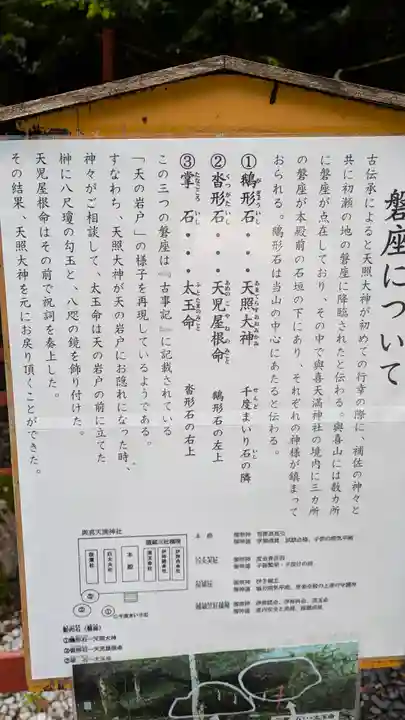 磐座について
古伝承によると天照大神が初めての行幸の際に、補佐の神々と
共に初瀬の地の磐座に降臨されたと伝わる。與喜山には数カ所
に磐座が点在しており、その中で與喜天満神社の境内に三カ所
の磐座が本殿前の石垣の下にあり、それぞれの神様が鎮まって
おられる。鵝形石は当山の中心にあたると伝わる。
①鵝形石・・・天照大神 千度まいり石の隣
②沓形石・・・天児屋根命 鵝形石の左上
③掌 石・・・太玉命 沓形石の右上
この三つの磐座は『古事記』に記載されている
「天の岩戸」の様子を再現しているようである。
すなわち、天照大神が天の岩戸にお隠れになった時、
神々がご相談して、太玉命は天の岩戸の前に立てた
榊に八尺瓊の勾玉と、八咫の鏡を飾り付けた。
天児屋根命はその前で祝詞を奏上した。
その結果、天照大神を元にお戻り頂くことができた。
與喜天満神社
本殿
②
③
①
①鵝形石―天照大神